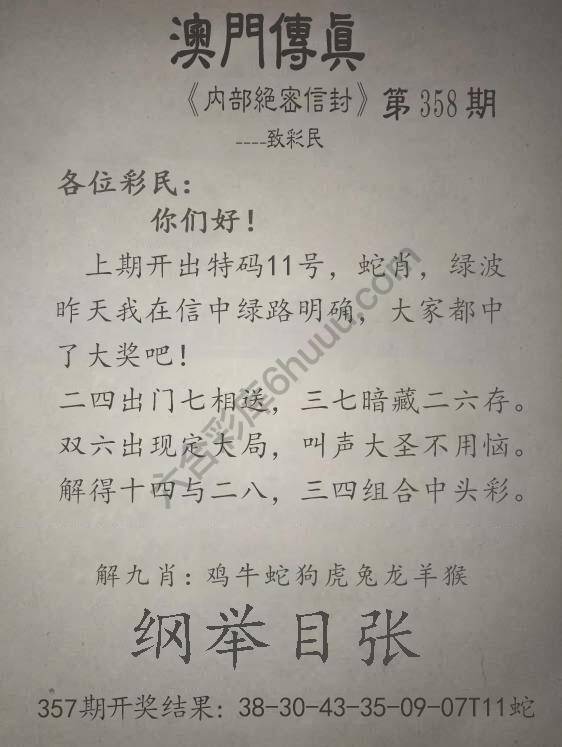 澳門傳眞
《内部絕密信封》第358期
----致彩民
各位彩民：
你们好！
上期开出特码11号，蛇肖，绿波
昨天我在信中绿路明确，大家都中
了大奖吧！
二四出门七相送，三七暗藏二六存。
双六出现定大局，叫声大圣不用恼。
解得十四与二八，三四组合中头彩。
解九肖：鸡牛蛇狗虎兔龙羊猴
纲举目张
357期开奖结果：38-30-43-35-09-07T11蛇
六合彩库6huuu.com